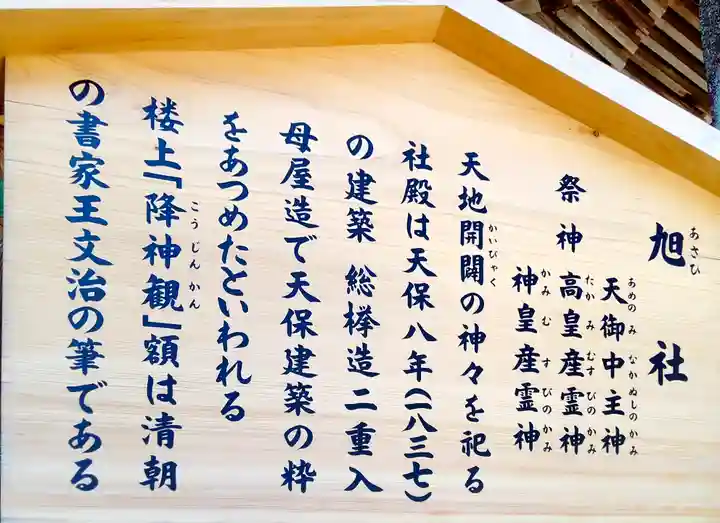 旭社
あさひ
天御中主神
あめのみなかぬしのかみ
祭神 高皇産霊神
たかみむすびのかみ
神皇産霊神
かみむすびのかみ
天地開闢の神々を祀る
かいびゃく
社殿は天保八年(一八三七)
の建築 総欅造二重入
母屋造で天保建築の粋
をあつめたといわれる
楼上「降神観」額は清朝
こうじんかん
の書家王文治の筆である